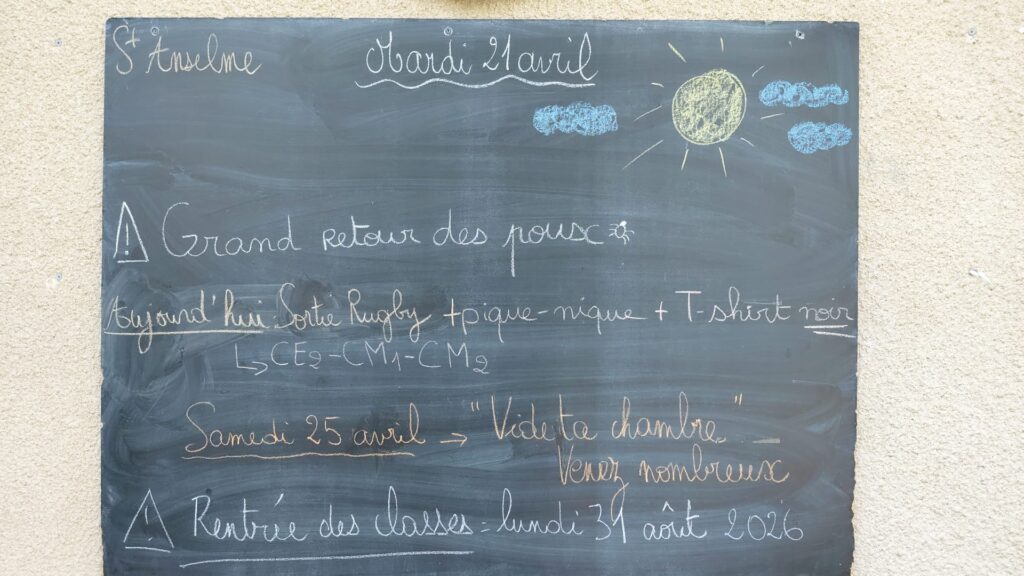 St Anselme
Mardi 21 avril
Grand retour des poux
Aujourd'hui : Sortie Rugby + pique-nique + T-shirt noir
↳ CE2-CM1-CM2
Samedi 25 avril → "Vide ta chambre"
Venez nombreux
Rentrée des classes = lundi 31 août 2026